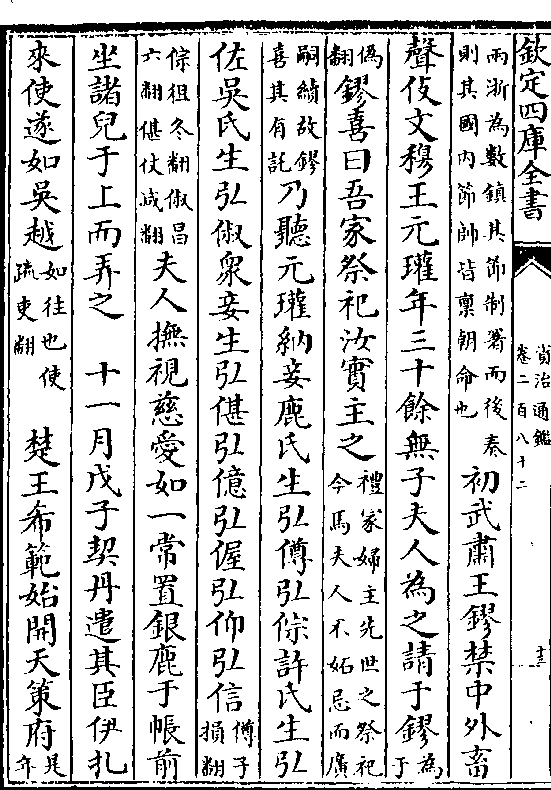 欽定四庫全書
資治通鑑
卷二百八十二
十三
兩浙為數鎮其節制署而後奏
則其國内節帥皆禀朝命也
初武肅王鏐禁中外畜
聲伎文穆王元瓘年三十餘無子夫人為之請于鏐為于
偽翻鏐喜曰吾家祭祀汝實主之禮家婦主先世之祭祀今馬夫人不妬忌而廣
嗣績故鏐喜其有託乃聽元瓘納妾鹿氏生弘僔弘倧許氏生弘
佐吳氏生弘俶衆妾生弘偡弘億弘偓弘仰弘信僔子損翻
倧徂冬翻俶昌六翻偡仗減翻夫人撫視慈愛如一常置銀鹿于帳前
坐諸兒于上而弄之 十一月戊子契丹遣其臣伊扎
來使遂如吳越如往也使疏吏翻 楚王希範始開天策府是年